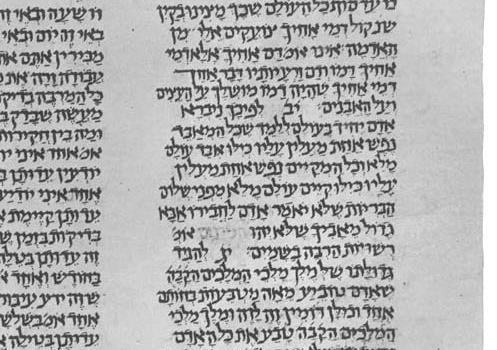 נו עד סוף כל העולם שכך מצינו בקין
שנ קול דמי אחיך צועקים אלי מן
האדמה אינו אומ דם אחיך אלא דמי
אחיך דמו ודם זרעיותיו דבר אחר
דמי אחיך שהיה דמו מושלך על העצים
ועל האבנים יב לפיכך ניברא
אדם יחיד בעולם ללמד שכל המאבד
נפש אחת מעלין עליו כילו איבד עולם
מלא וכל המקיים נפש אחת מעלין
עליו כילו קיים עולם מלא מפני שלום
הבריות שלא יאמר אדם לחבירו אבא
גדול מאביך שלא יהו המינים אומ
רשויות הרבה בשמים יג להגיד
גדולתו של מלך מלכי המלכים הקבה
שאדם טובע מאה מטבעות בחותם
אחד וכולן דומין זה לזה ומלך מלכי
המלכים הקבה טבע את כל האדם
שעה ובאי
באי זה יום ובאי
מכירין אתם את
עבודה זרה את
כל המרבה בדיק
מעשה שברק ב
ומה בין חקירות
אמ אחד איני יו
יודעין עדותן
אחד איני יודע
עדותן קיימת א
בדיקות בזמן ש
זה עדותן בטילה
בחודש ואחד
שזה ידע עיבור
אחד אמ בשלש
עדותן בטילה